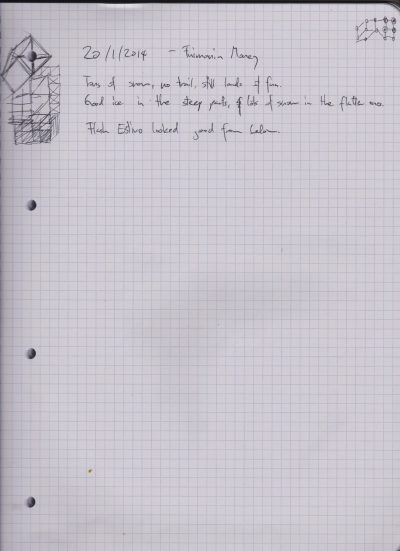 20/1/2014 -
Tons of snow, no trail, still loads of fun.
Good ice in the steep parts, & lots of snow in the flatter ones.
Flash Estivo looked good from below.